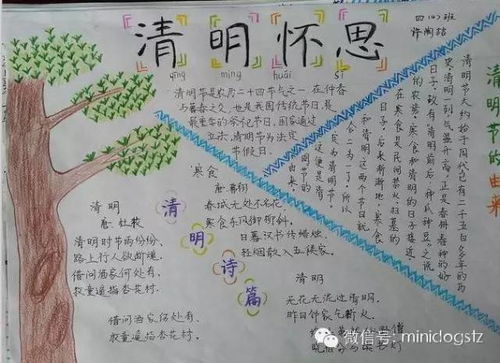 清明怀思
qīng míng huái sī
四(4)班
清明节是农历二十四节气之一,在仲春
与暮春之交,也是我国传统节日,最
重要的祭祀节日,国家通过
立法,清明节为法定
节假日。
寒食
唐·韩翃
春城无处不飞花
寒食东风御柳斜。
日暮汉书传蜡烛,
轻烟散入五侯家。
清明
唐·杜牧
清明时节雨纷纷,
路上行人欲断魂,
借问酒家何处有,
牧童遥指杏花村.
借问酒家何处有,
牧童遥指杏花村.
清明诗篇
清明
无花无酒过清明,
昨日邻家乞新火,
清明节的由来
清明节大约始于周代已有二千五百多年的历
史清明一到气温升高,正是春耕春种的好
日子,故有清明前后,种瓜种豆之说
的农谚,寒食和清明的日子接近
在寒食是民间禁火扫墓的
日子,后来渐渐地,寒食
和清明这两个节日就
合二为一了,所以
微信号: minidogstz